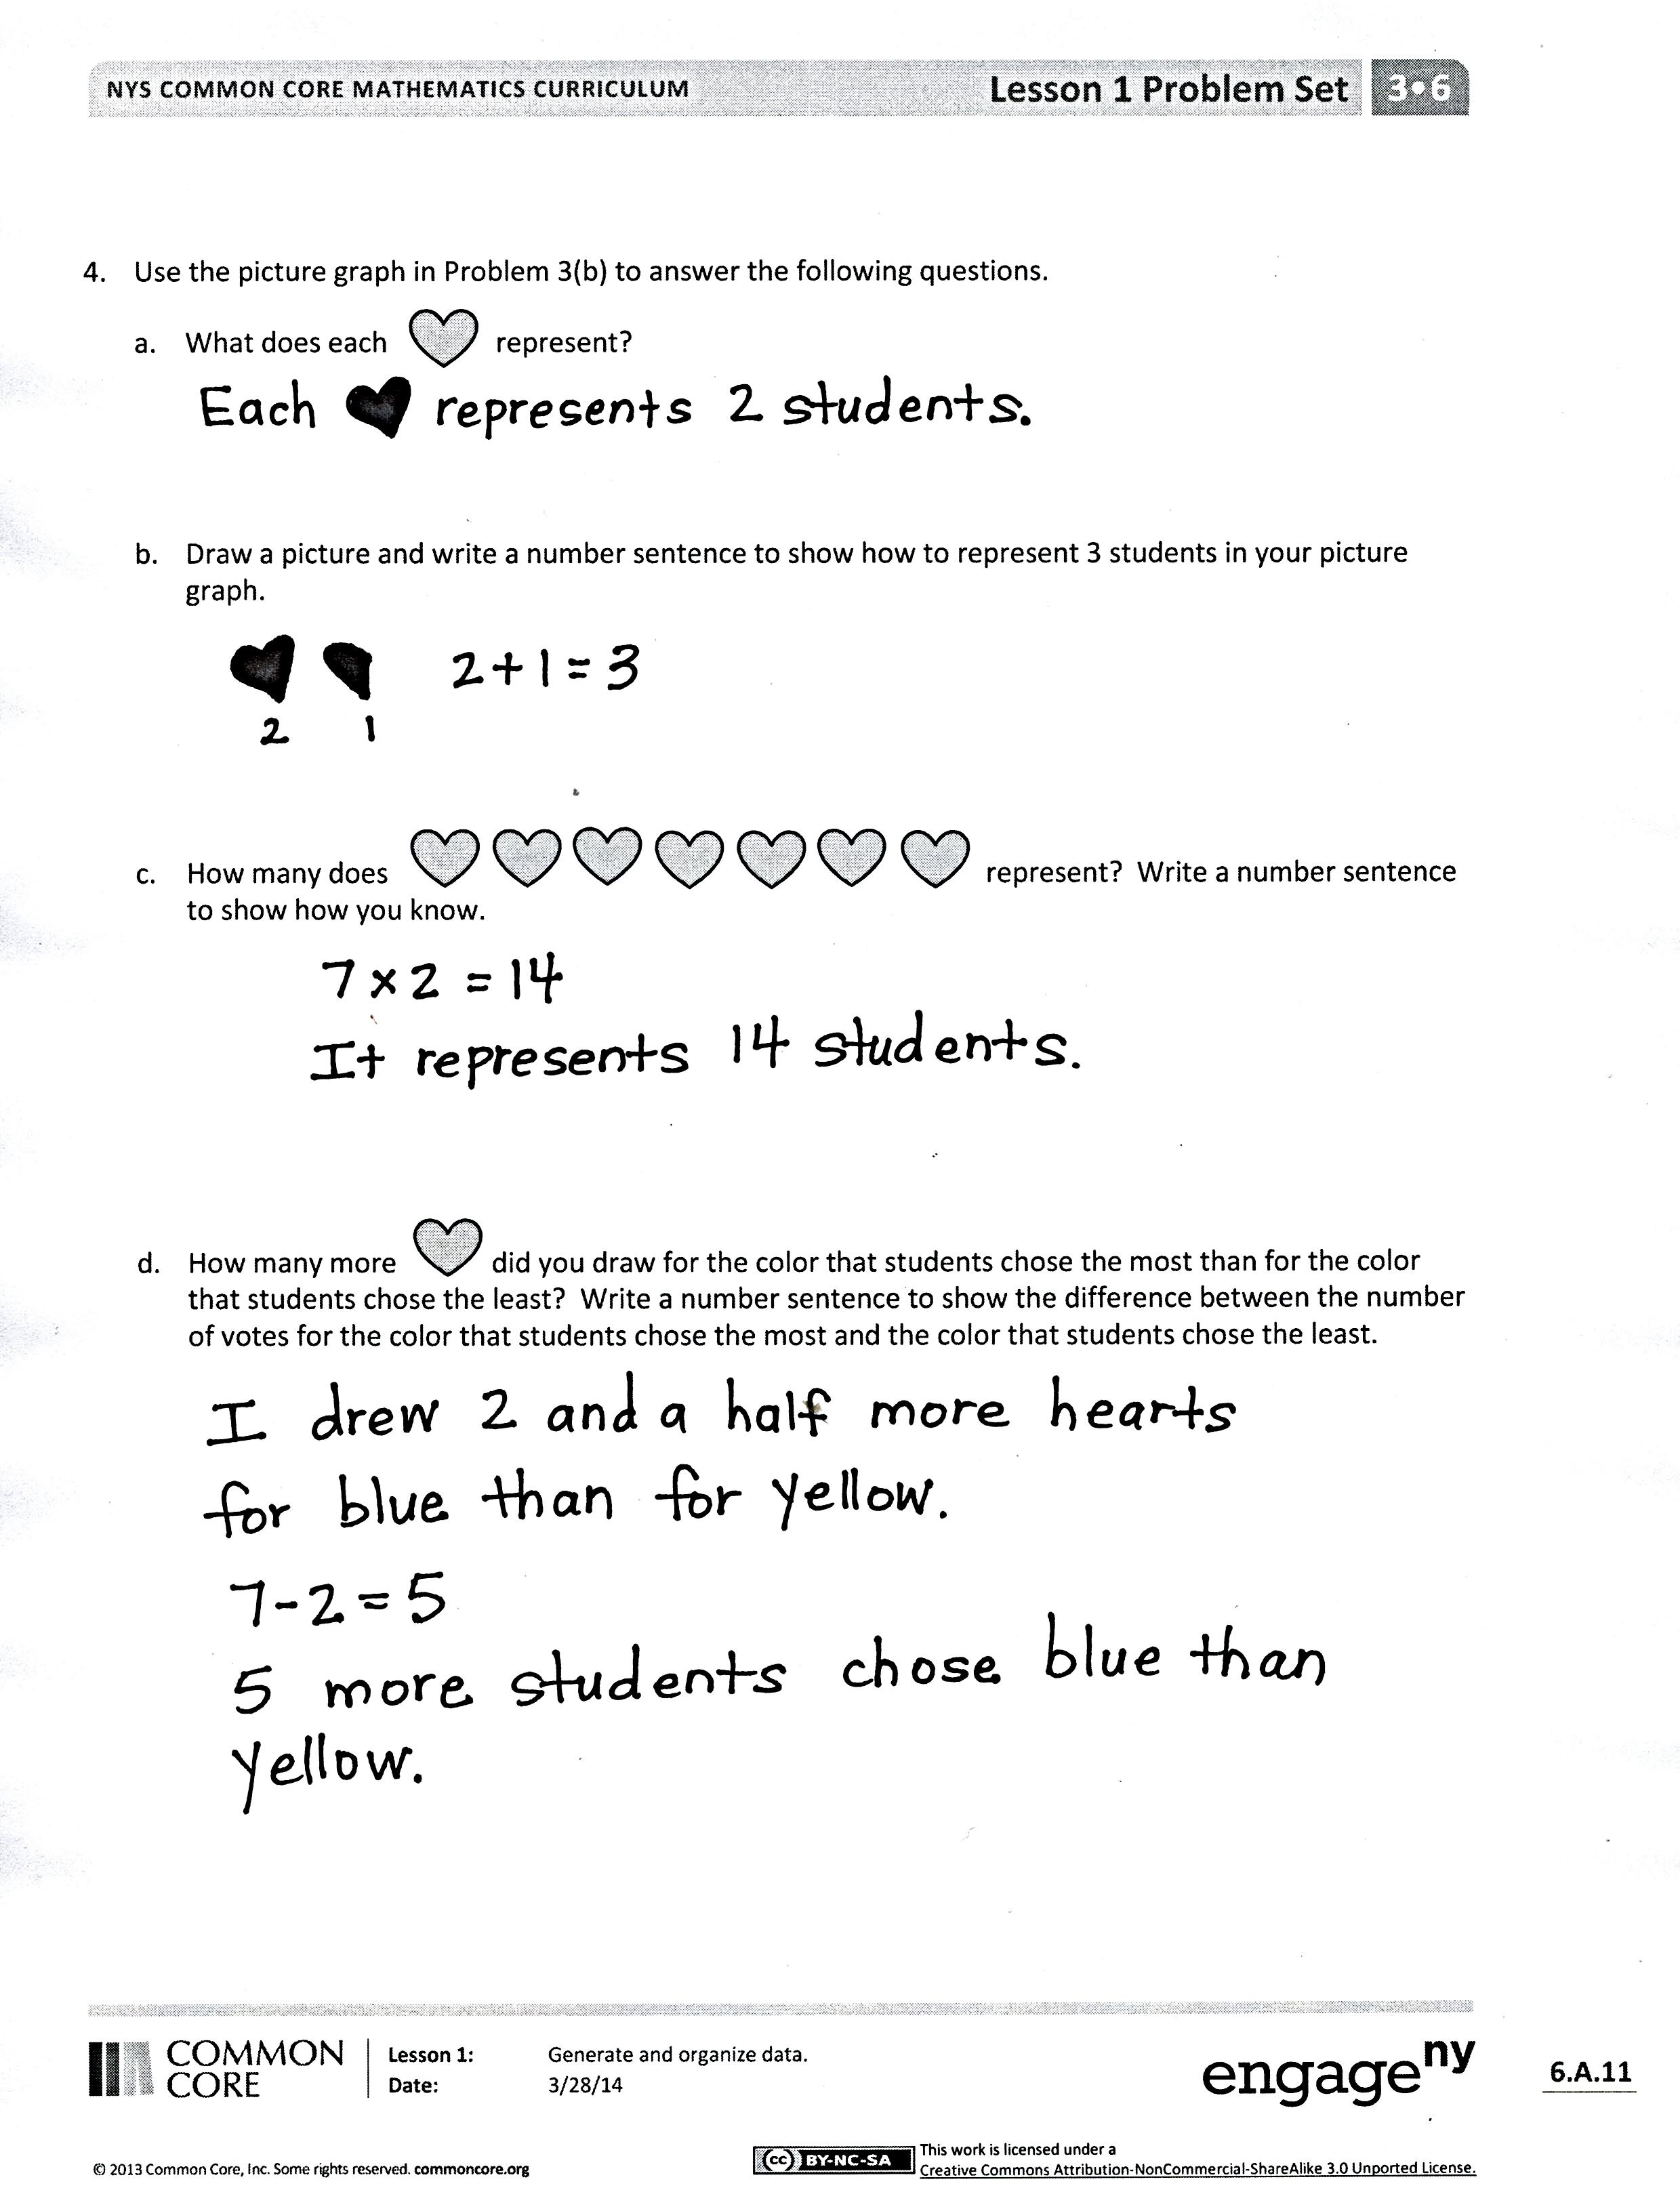 NYS COMMON CORE MATHEMATICS CURRICULUM Lesson 1 Problem Set 3•6
4. Use the picture graph in Problem 3(b) to answer the following questions.
a. What does each represent?
Each represents 2 students.
b. Draw a picture and write a number sentence to show how to represent 3 students in your picture
graph.
2+1=3
2 1
c. How many does represent? Write a number sentence
to show how you know.
7 x 2 = 14
It represents 14 students.
d. How many more did you draw for the color that students chose the most than for the color
that students chose the least? Write a number sentence to show the difference between the number
of votes for the color that students chose the most and the color that students chose the least.
I drew 2 and a half more hearts
for blue than for yellow.
7-2=5
5 more students chose blue than
yellow.
COMMON CORE
Lesson 1: Generate and organize data.
Date: 3/28/14
engageny
6.A.11
© 2013 Common Core, Inc. Some rights reserved. commoncore.org
cc BY-NC-SA
This work is licensed under a
Creative Commons Attribution-NonCommercial-ShareAlike 3.0 Unported License.